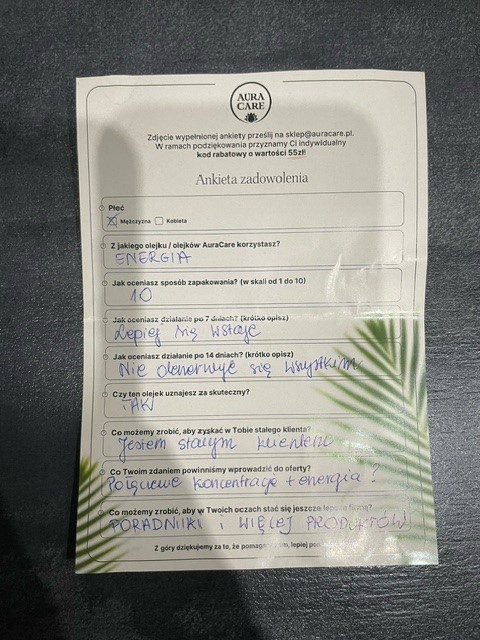 AURA
CARE
Zdjęcie wypełnionej ankiety prześlij na sklep@auracare.pl.
W ramach podziękowania przyznamy Ci indywidualny
kod rabatowy o wartości 55zł!
Ankieta zadowolenia
Płeć
Mężczyzna Kobieta
Z jakiego olejku / olejków AuraCare korzystasz?
ENERGIA
Jak oceniasz sposób zapakowania? (w skali od 1 do 10)
10
Jak oceniasz działanie po 7 dniach? (krótko opisz)
Lepiej się wstaje
Jak oceniasz działanie po 14 dniach? (krótko opisz)
Nie denerwuje się wszystkim
Czy ten olejek uznajesz za skuteczny?
TAK
Co możemy zrobić, aby zyskać w Tobie stałego klienta?
Jestem stałym klientem
Co Twoim zdaniem powinniśmy wprowadzić do oferty?
koncentracje + energia?
Co możemy zrobić, aby w Twoich oczach stać się jeszcze lepszą firmą?
PORADNIKI i WIĘCEJ PRODUKTÓW
Z góry dziękujemy za to, że lepiej